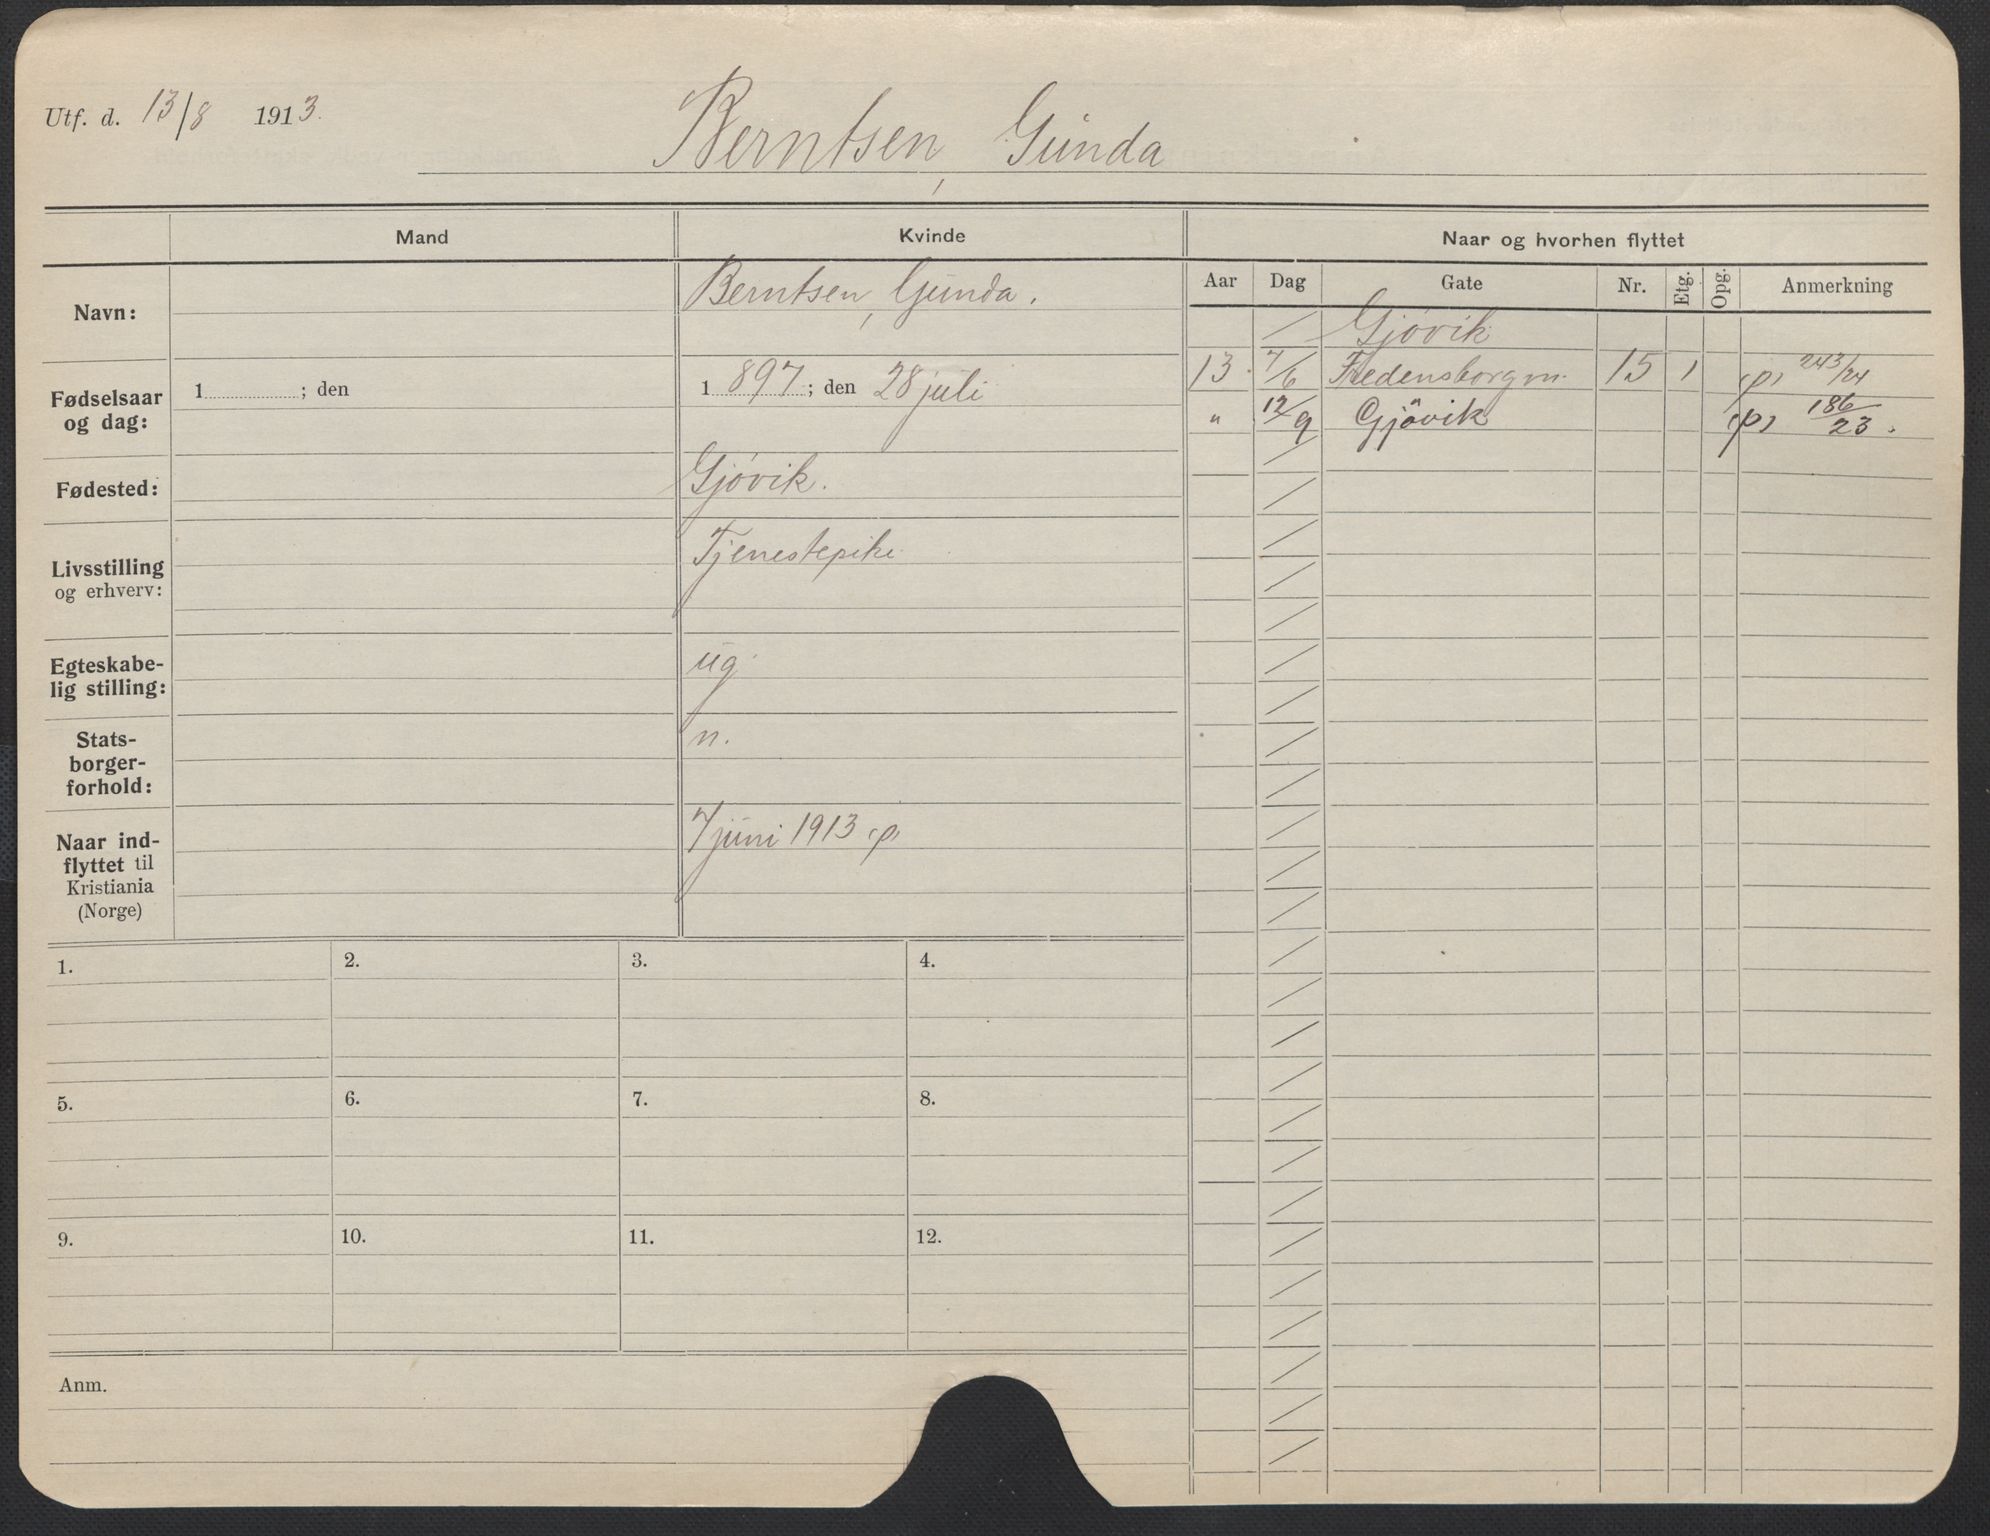 Utf. d. 13/8 1913.
Berntsen, Gunda
Mand
Kvinde
Naar og hvorhen flyttet
Aar Dag Gate Nr. Etg. Opg. Anmerkning
Navn:
Berntsen, Gunda.
Fødselsaar
og dag:
1 ; den
1 897 ; den 28 juli
Fødested:
Gjøvik.
Livsstilling
og erhverv:
Tjenestepike
Egteskabe-
lig stilling:
ug.
Stats-
borger-
forhold:
n.
Naar ind-
flyttet til
Kristiania
(Norge)
7 juni 1913 (p)
Gjøvik
13 7/6 Fredensborgvn. 15 1 (p) 243/24
" 12/9 Gjøvik (p) 186/23.
1. 2. 3. 4.
5. 6. 7. 8.
9. 10. 11. 12.
Anm.